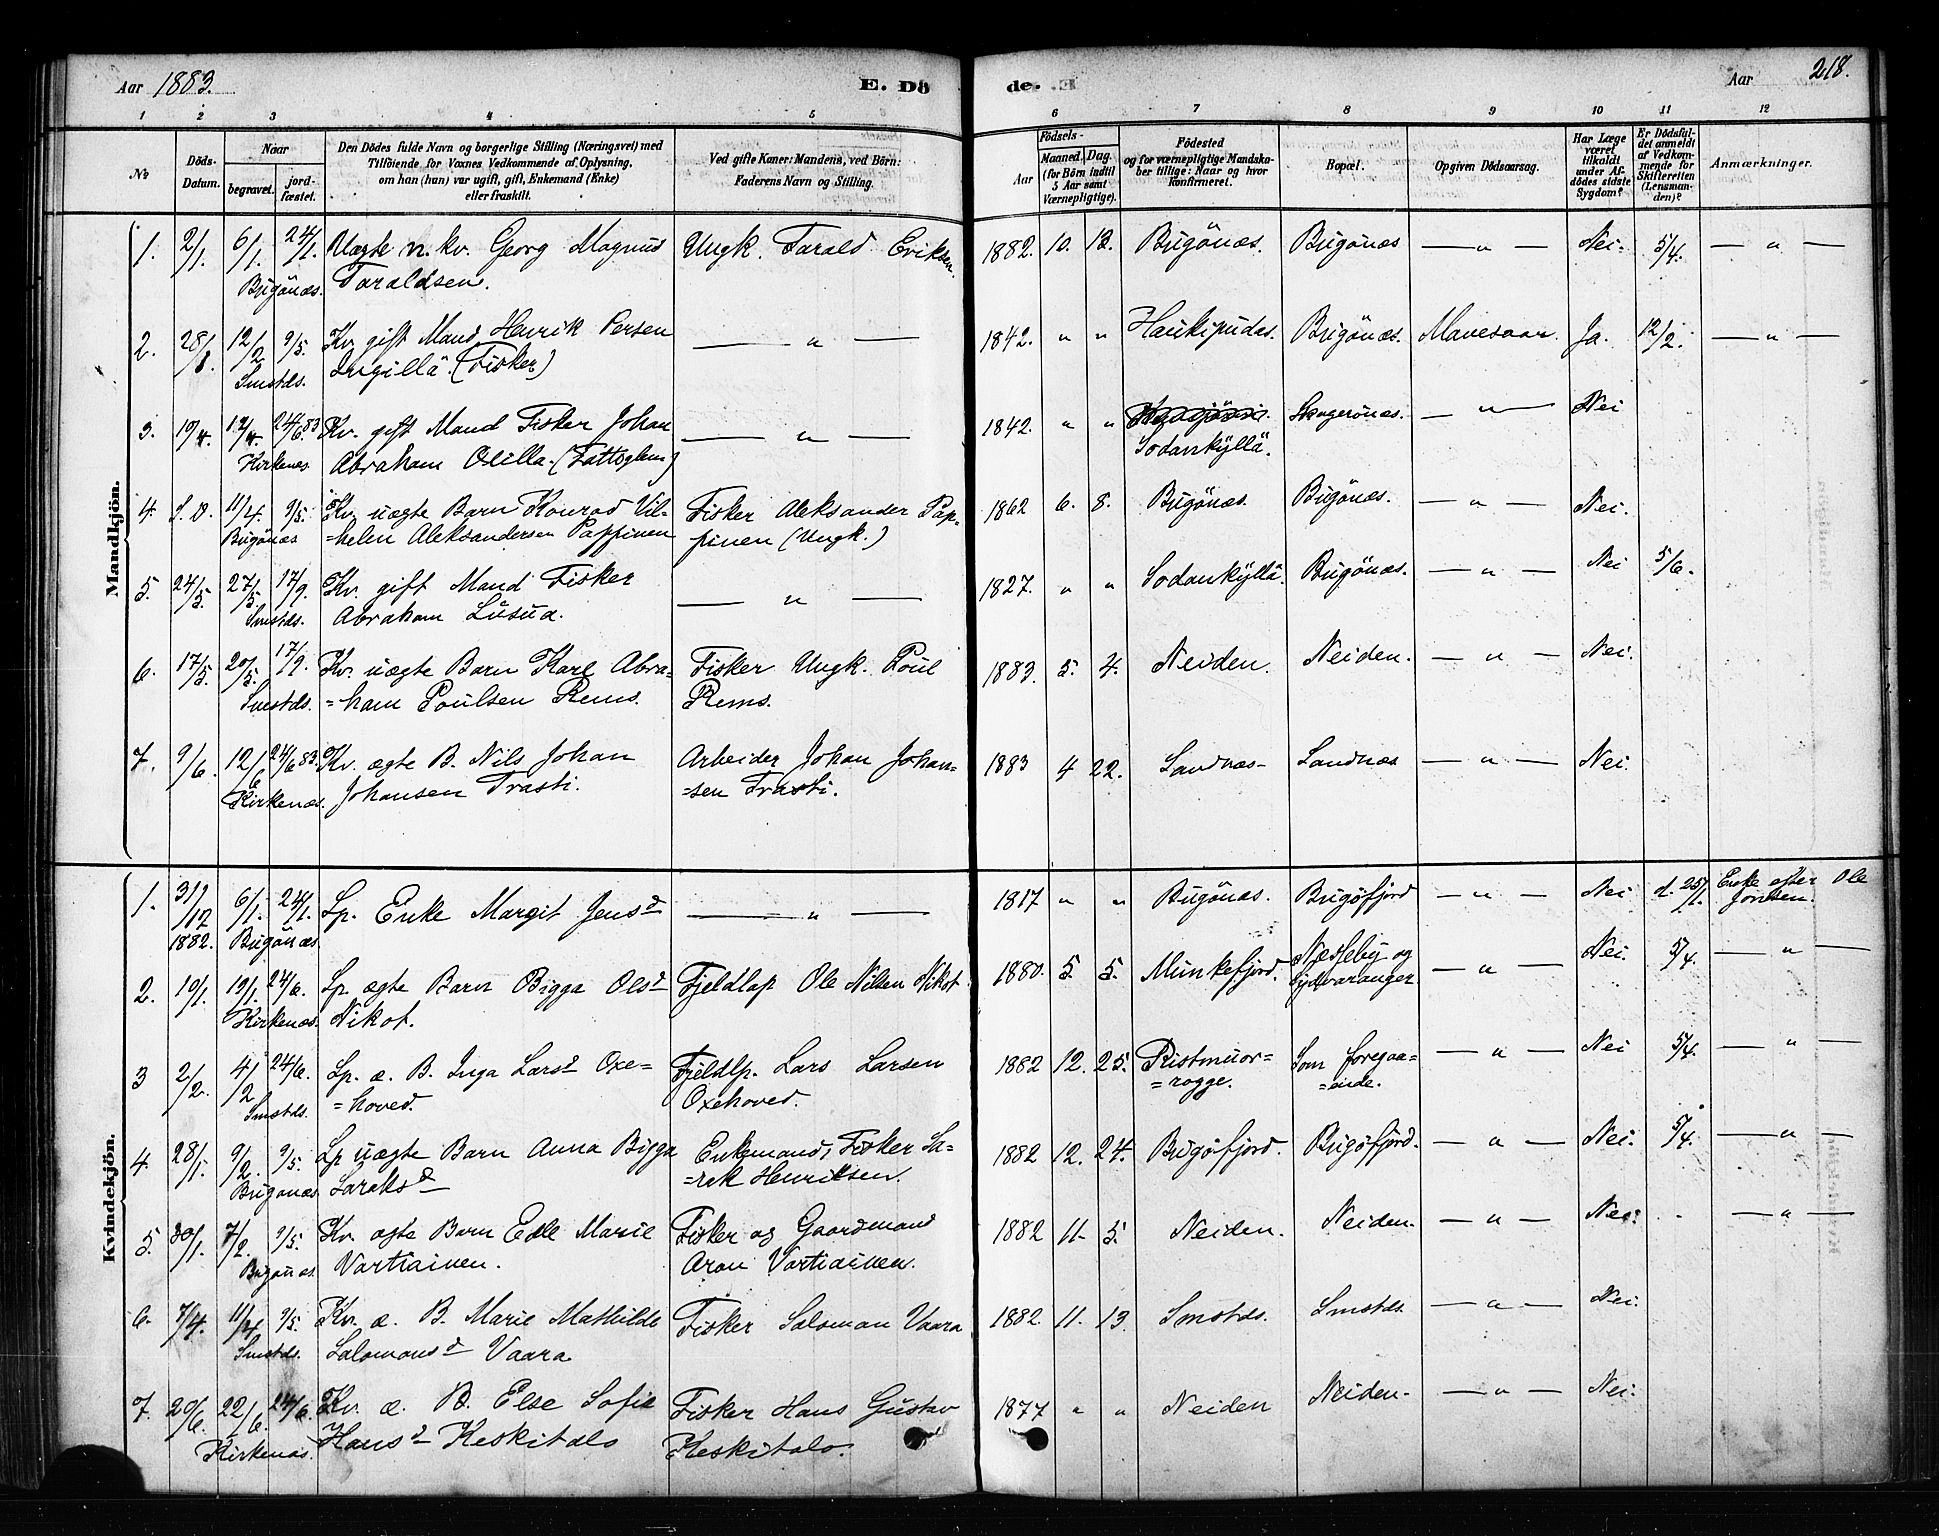 Aar 1883.
E. Dö
de.
Aar
218.
1 2 3 4 5 6 7 8 9 10 11 12
No
Döds-
Datum.
Naar
begravet.
jord-
fæstet.
Den Dödes fulde Navn og borgerlige Stilling (Næringsvei) med
Tilföiende for Voxnes Vedkommende af Oplysning,
om han (hun) var ugift, gift, Enkemand (Enke)
eller fraskilt.
Ved gifte Koner: Mandens, ved Börn:
Faderens Navn og Stilling.
Födsels-
Aar
Maaned.
Dag.
(for Börn indtil
5 Aar samt
Værnepligtige).
Födested
og for værnepligtige Mandska-
ber tillige: Naar og hvor
konfirmeret.
Bopæl.
Opgiven Dödsaarsag.
Har Læge
været
tilkaldt
under Af-
dödes sidste
Sygdom?
Er Dödsfal-
det anmeldt
af Vedkom-
mende for
Skifteretten
(Lensman-
den)?
Anmærkninger.
Mandkjön.
1. 2/1. 6/1. 24/1. Uægte n. kv. Georg Magnus Ungk. Tarald Eriksen. 1882. 10. 13. Bugönæs. Bugönæs — " — Nei. 5/4. — " —
Bugönæs. Taraldsen.
2. 28/1. 12/2 9/5. Kv. gift Mand Henrik Persen — " — 1842. " " Haukipudas. Bugönæs. Mavesaar. Ja. 12/2. — " —
Smstds. Ingillä. (Fisker)
3. 10/4. 12/4. 24/6.83 Kv. gift Mand Fisker Johan — " — 1842. " " Skogerönæs. — " — Nei
Kirkenæs. Abraham Olilla. (Fattiglem) Sodankyllä.
4. S. D. 11/4. 9/5. Kv. uægte Barn Konrad Vil- Fisker Aleksander Pap- 1862 6. 8. Bugönæs. Bugönæs. — " — Nei.
Bugönæs =helm Aleksandersen Pappinen pinen (Ungk.)
5. 24/5. 27/5. 17/9. Kv. gift Mand Fisker — " — 1827. " " Sodankyllä. Bugönæs. — " — Nei 5/6.
Smstds. Abraham Lusua.
6. 17/5. 20/5. 17/9. Kv. uægte Barn Karl Abra- Fisker Ungk. Poul 1883. 5. 4. Neiden. Neiden. — " — Nei.
Smstds. =ham Poulsen Rems. Rems.
7. 9/6. 12/6 24/6.83. Kv. ægte B. Nils Johan Arbeider Johan Johan- 1883 4 22. Sandnæs- Sandnæs — " — Nei.
Kirkenæs. Johansen Trasti. =sen Trasti.
Kvindekjön.
1. 31/12 6/1. 24/1. Lp. Enke Margit Jensd — " — 1817 " " Bugönæs. Bugöfjord — " — Nei d. 25/1. Enke efter Ole
1882. Bugönæs. Jonsen.
2. 19/1. 19/1. 24/6. Lp. ægte Barn Bigga Olsd Fjeldlap Ole Nilsen Nikot. 1880. 5. 5. Munkefjord. Næsseby og — " — Nei. 5/4. — " —
Kirkenæs. Nikot. Sydvaranger
3 2/2. 4/2 24/6. Lp. æ. B. Inga Larsd Oxe= Fjeldlp. Lars Larsen 1882 12. 25. Ristmuor= Som foregaa= — " — Nei 5/4. — " —
Smstds. =hoved. Oxehoved. =rogge. =ende.
4. 28/1. 9/2. 9/5. Lp uægte Barn Anna Bigga Enkemand, Fisker Sa- 1882 12. 24. Bugöfjord. Bugöfjord. — " — Nei. 5/4. — " —
Bugönæs Saraksd =rak Henriksen.
5. 30/1. 7/2. 9/5. Kv. ægte Barn Edle Marie Fisker og Gaardmand 1882 11. 5. Neiden. Neiden. — " — Nei. — " —
Bugönæs. Vartiainen. Aron Vartiainen.
6. 7/4. 11/4 9/5. Kv. æ. B. Marie Mathilde Fisker Salomon Vaara 1882. 11. 13. Smstds. Smstds. — " — Nei.
Smstds. Salomonsd Vaara
7. 20/6. 22/6. 24/6. Kv. æ. B. Else Sofie Fisker Hans Gustav 1877 " " Neiden Neiden. — " — Nei.
Kirkenæs. Hansd Keskitalo Keskitalo.